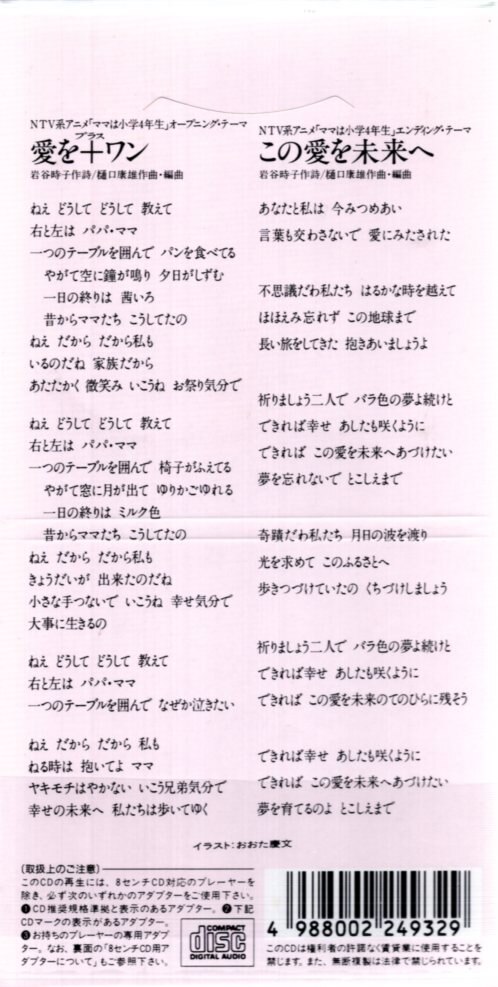 NTV系アニメ「ママは小学4年生」オープニング・テーマ
プラス
愛を＋ワン
岩谷時子作詩/樋口康雄作曲・編曲
ねえ どうして どうして 教えて
右と左は パパ・ママ
一つのテーブルを囲んで パンを食べてる
やがて空に鐘が鳴り 夕日がしずむ
一日の終りは 茜いろ
昔からママたち こうしてたの
ねえ だから だから私も
いるのだね 家族だから
あたたかく 微笑み いこうね お祭り気分で
ねえ どうして どうして 教えて
右と左は パパ・ママ
一つのテーブルを囲んで 椅子がふえてる
やがて窓に月が出て ゆりかごゆれる
一日の終りは ミルク色
昔からママたち こうしてたの
ねえ だから だから私も
きょうだいが 出来たのだね
小さな手つないで いこうね 幸せ気分で
大事に生きるの
ねえ どうして どうして 教えて
右と左は パパ・ママ
一つのテーブルを囲んで なぜか泣きたい
ねえ だから だから 私も
ねる時は 抱いてよ ママ
ヤキモチはやかない いこう兄弟気分で
幸せの未来へ 私たちは歩いてゆく
NTV系アニメ「ママは小学4年生」エンディング・テーマ
この愛を未来へ
岩谷時子作詩/樋口康雄作曲・編曲
あなたと私は 今みつめあい
言葉も交わさないで 愛にみたされた
不思議だわ私たち はるかな時を越えて
ほほえみ忘れず この地球まで
長い旅をしてきた 抱きあいましょうよ
祈りましょう二人で バラ色の夢よ続けと
できれば幸せ あしたも咲くように
できれば この愛を未来へあづけたい
夢を忘れないで とこしえまで
奇蹟だわ私たち 月日の波を渡り
光を求めて このふるさとへ
歩きつづけていたの くちづけしましょう
祈りましょう二人で バラ色の夢よ続けと
できれば幸せ あしたも咲くように
できれば この愛を未来のてのひらに残そう
できれば幸せ あしたも咲くように
できれば この愛を未来へあづけたい
夢を育てるのよ とこしえまで
イラスト:おおた慶文
〔取扱上のご注意〕
このCDの再生には、8センチCD対応のプレーヤーを
除き、必ず次のいずれかのアダプターをご使用下さい。
❶CD推奨規格準拠と表示のあるアダプター。❷下記
CDマークの表示があるアダプター。
❸お持ちのプレーヤーの専用アダプ
ター。なお、裏面の「8センチCD用ア
ダプターについて」もご参照下さい。
COMPACT
disc
DIGITAL AUDIO
4 988002 249329
このCDは権利者の許諾なく賃貸業に使用することを
禁じます。また、無断複製は法律で禁じられています。